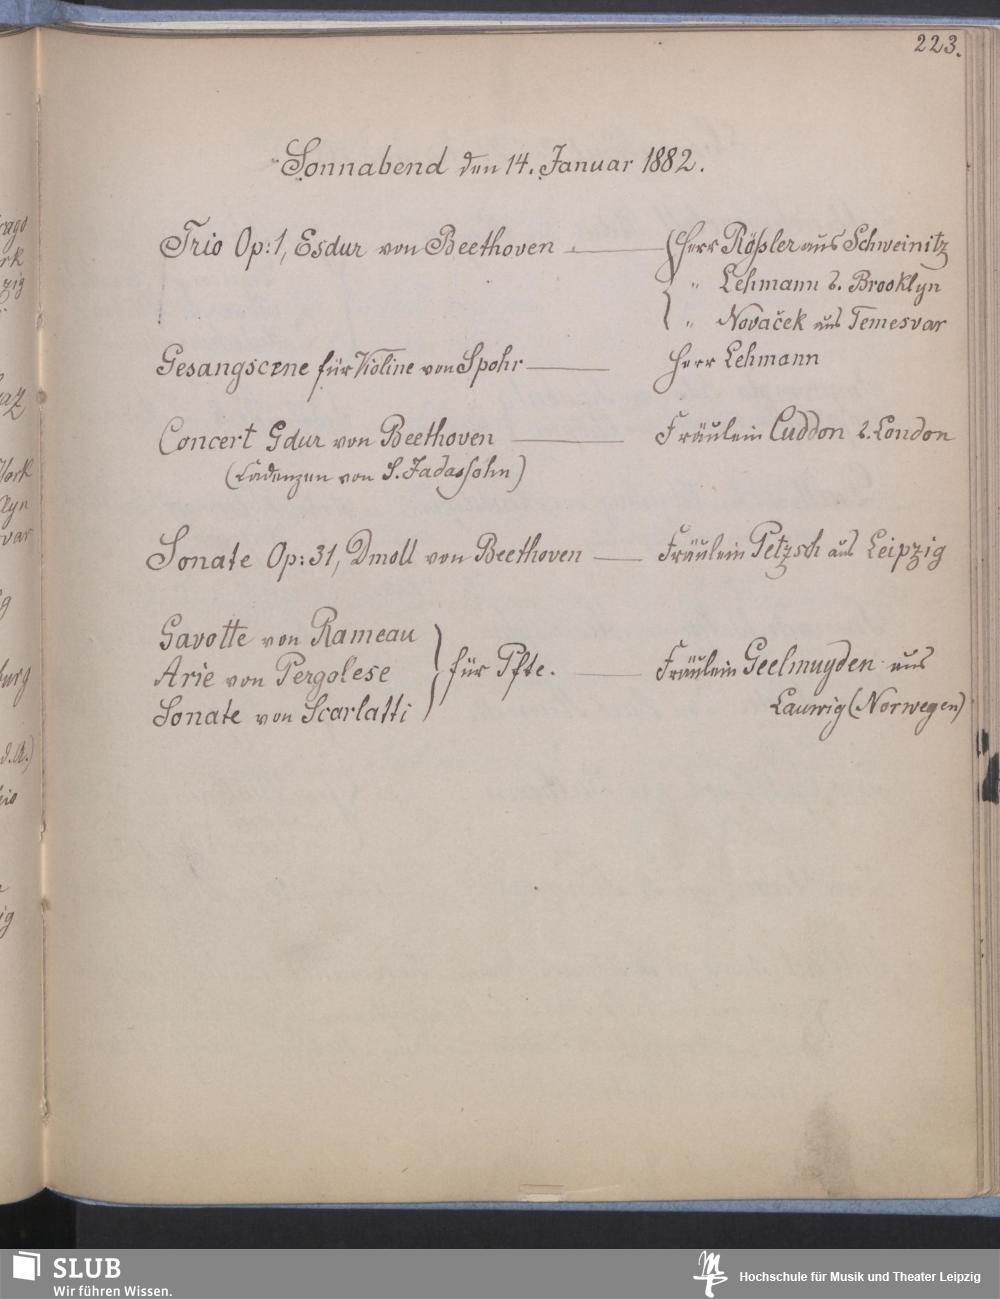 223.
Sonnabend den 14. Januar 1882.
Trio Op: 1, Esdur von Beethoven — Herr Rößler aus Schweinitz
" Lehmann a. Brooklyn
" Nováček aus Temesvar
Gesangscene für Violine von Spohr — Herr Lehmann
Concert Gdur von Beethoven — Fräulein Cuddon a. London
(Cadenzen von S. Jadassohn)
Sonate Op: 31, Dmoll von Beethoven — Fräulein Petzsch aus Leipzig
Gavotte von Rameau
Arie von Pergolese } für Pfte. — Fräulein Geelmuyden aus
Sonate von Scarlatti Laurvig (Norwegen)
SLUB
Wir führen Wissen.
Hochschule für Musik und Theater Leipzig